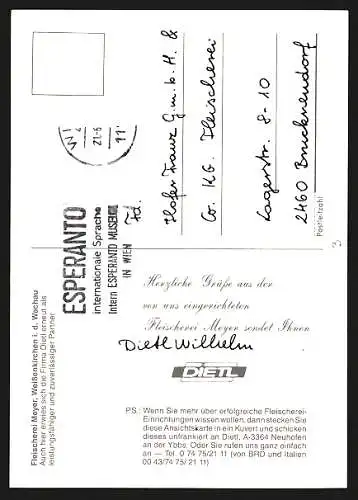 Fleischerei Meyer, Weißenkirchen i. d. Wachau
Auch hier erwies sich die Firma Dietl erneut als
leistungsfähiger und zuverlässiger Partner
ESPERANTO
internationale Sprache
Intern ESPERANTO MUSEUM
IN WIEN
21.6
11
Fa.
Hofer Franz G.m.b.H. &
Co. KG. Fleischerei
Lagerstr. 8-10
2460 Bruckneudorf
Postleitzahl
3
Herzliche Grüße aus der
von uns eingerichteten
Fleischerei Meyer sendet Ihnen
Dietl Wilhelm
DIETL
PS.: Wenn Sie mehr über erfolgreiche Fleischerei-
Einrichtungen wissen wollen, dann stecken Sie
diese Ansichtskarte in ein Kuvert und schicken
dieses umfrankiert an Dietl, A-3364 Neuhofen
an der Ybbs. Oder Sie rufen uns ganz einfach
an. Tel. 0 74 75/21 11 (von BRD und Italien
00 43/74 75/21 11).